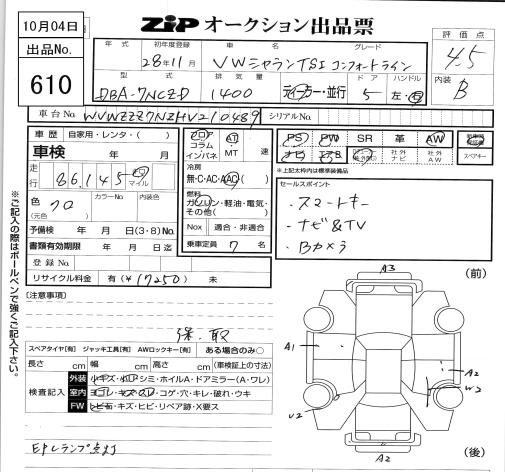 10月04日
出品No.
610
ZiP オークション出品票
評価点
4.5
内装
B
年式 初年度登録 車名 グレード
28年11月 VWシャラン TSI コンフォートライン
型式 排気量 ドア ハンドル
DBA-7NCZD 1400 ディーラー・並行 5 左・右
車台No WVWZZZ7NZHV210489 シリアルNo
車歴 自家用・レンタ・( )
フロア コラム インパネ AT ・ MT 速
PS PW SR 革 AW
ナビ エアB 社外ナビ 社外AW
スペアキー
※上記太枠内は標準装備品
車検 年 月
走行 86,145 キロ マイル
冷房
無・C・AC・AAC( )
燃料
ガソリン・軽油・電気・その他( )
色 クロ (元色) カラーNo 内装色
予備検 年 月 日(3・8)No
Nox 適合・非適合
書類有効期限 年 月 日迄
乗車定員 7 名
登録No
リサイクル料金 有(¥ 17250 ) 未
セールスポイント
・スマートキー
・ナビ&TV
・Bカメラ
(注意事項)
保.取
スペアタイヤ[有] ジャッキ工具[有] AWロックキー[有] ある場合のみ○
長さ cm 幅 cm 高さ cm (車検証上の寸法)
検査記入
外装 小キズ・小凹・シミ・ホイルA・ドアミラー(A・ワレ)
室内 ヨゴレ・キズ・スレ・コゲ・穴・キレ・破れ・ウキ
FW トビ石・キズ・ヒビ・リペア跡・X要ス
EPCランプ点灯
※ご記入の際はボールペンで強くご記入下さい。
(前)
A3
A1
A2
W2
U2
A2
(後)